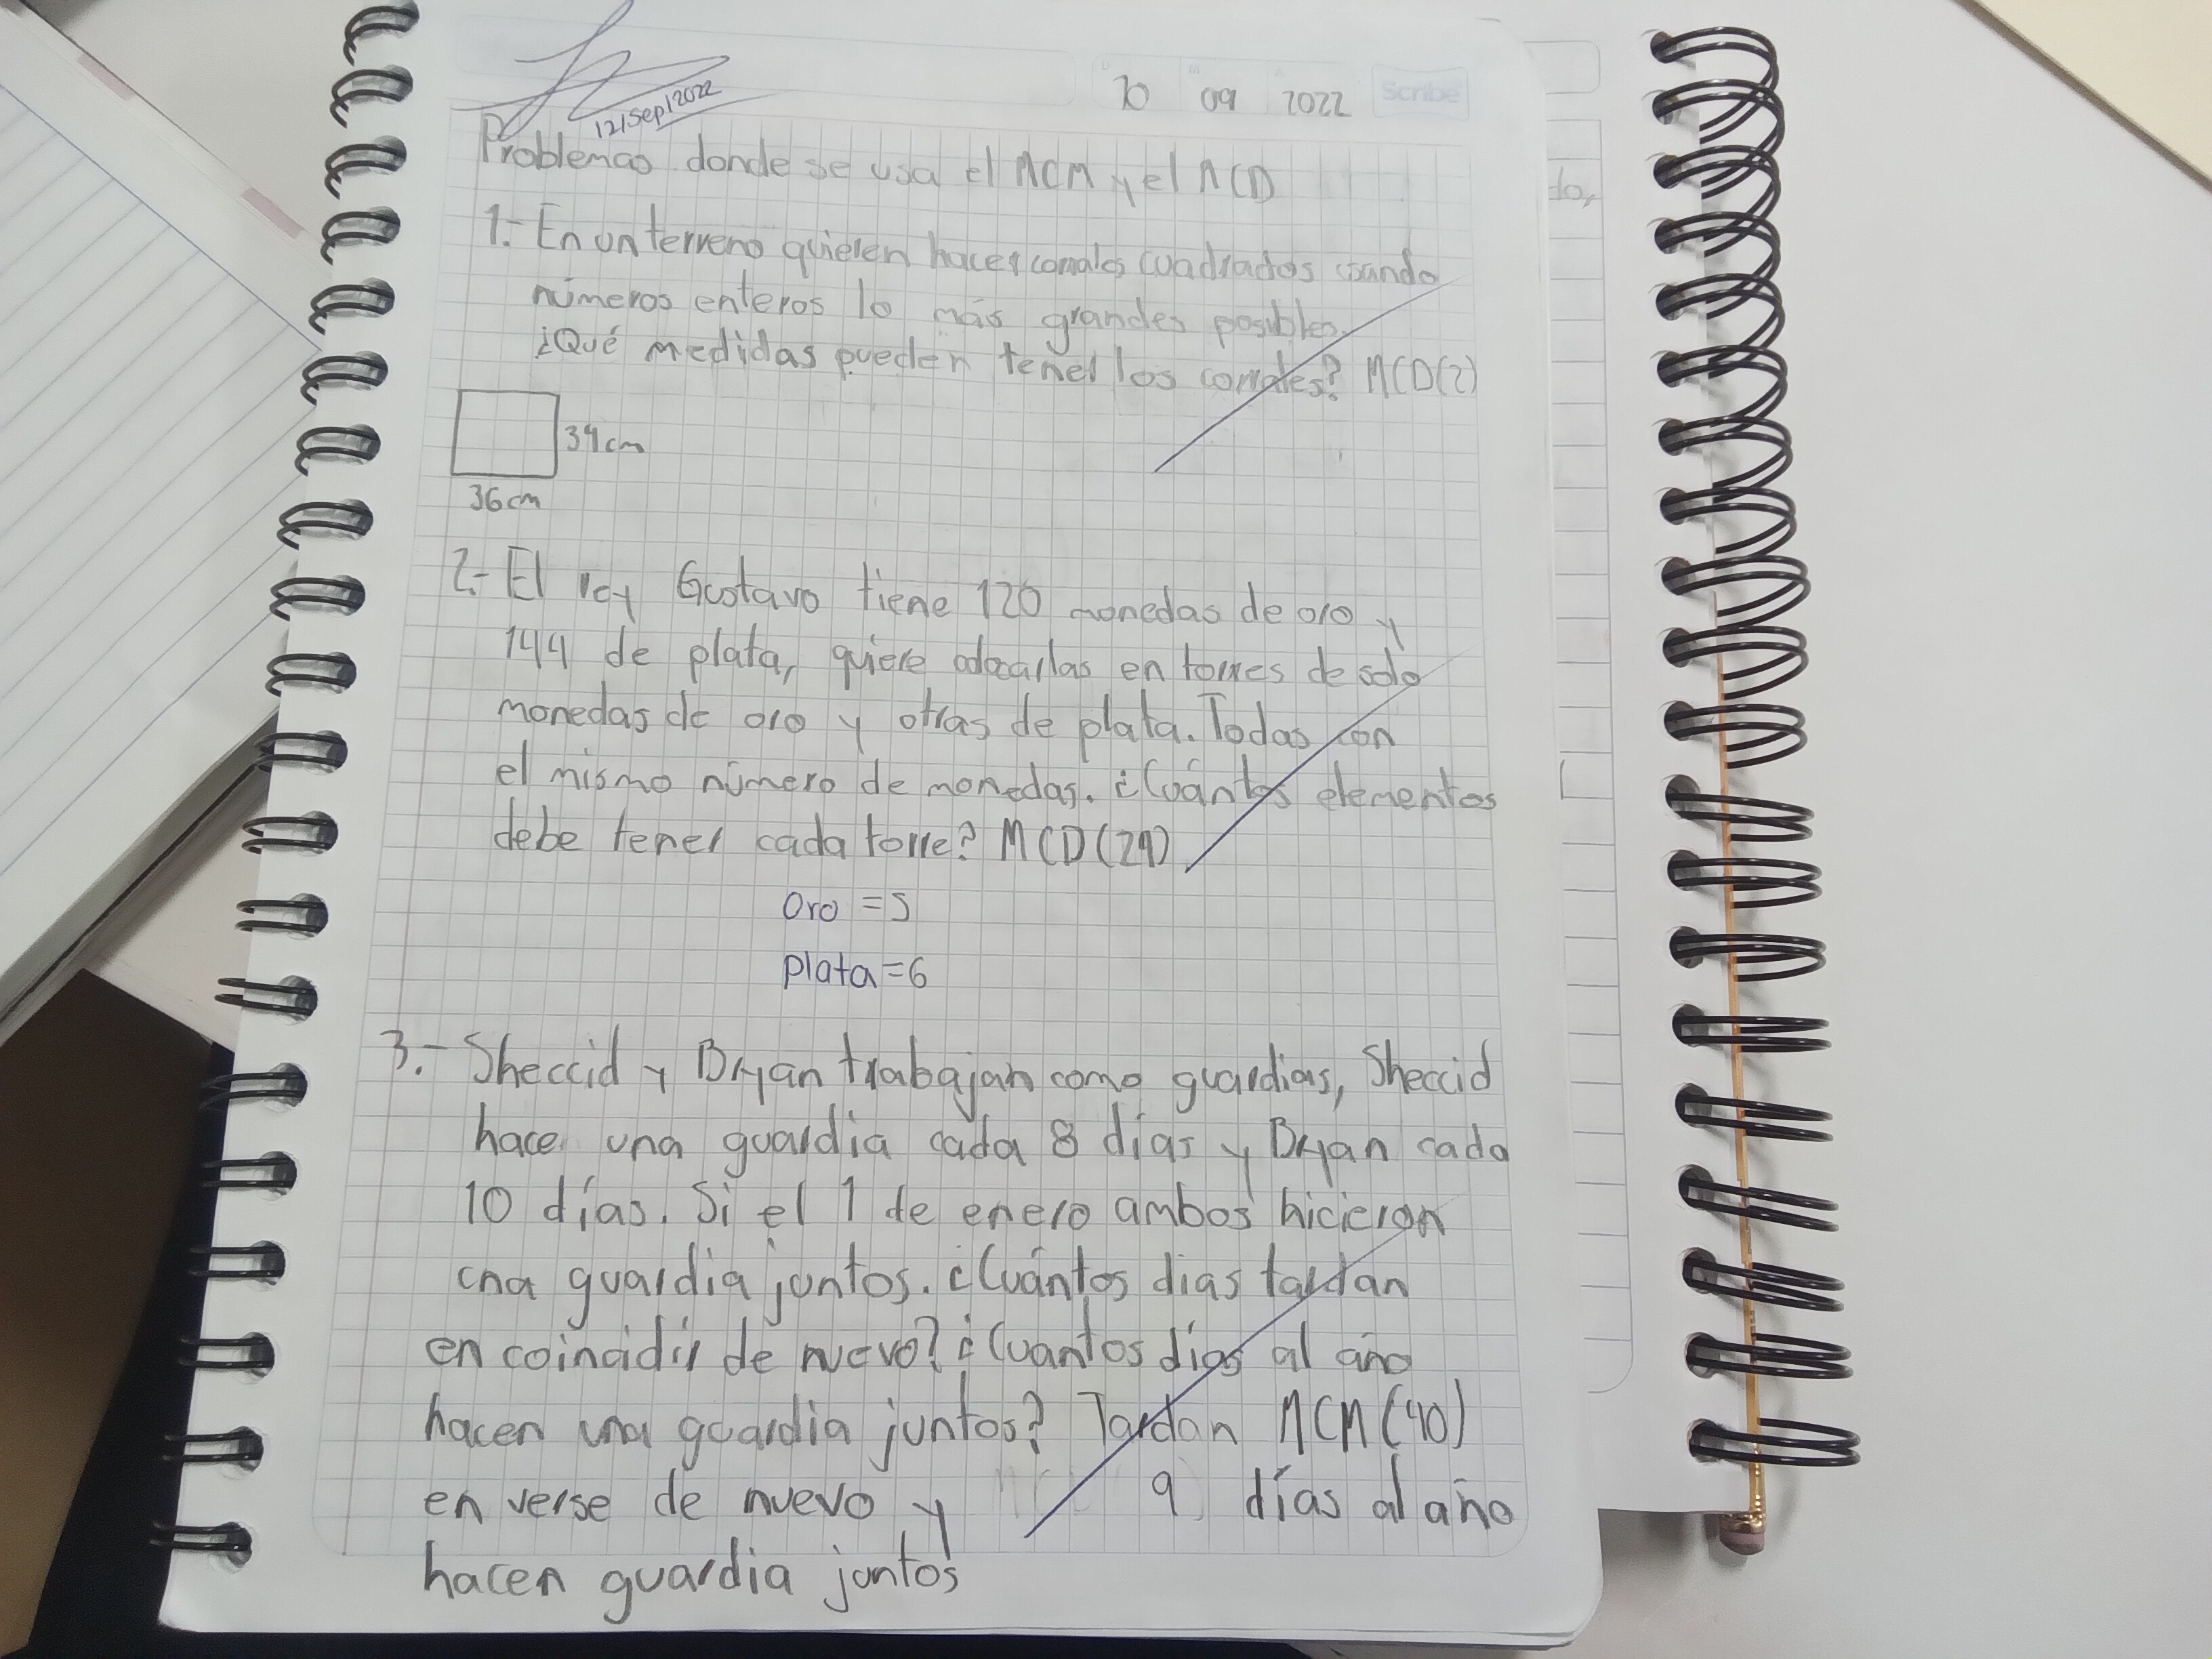 12/Sep/2022
10 09 2022 Scribe
Problemas donde se usa el MCM y el MCD
1.- En un terreno quieren hacer corrales cuadrados usando
números enteros lo más grandes posibles.
¿Qué medidas pueden tener los corrales? MCD(2)
34cm
36cm
2.- El rey Gustavo tiene 120 monedas de oro y
144 de plata, quiere colocarlas en torres de solo
monedas de oro y otras de plata. Todas con
el mismo número de monedas. ¿Cuántos elementos
debe tener cada torre? MCD(24)
Oro =5
plata=6
3.- Sheccid y Bryan trabajan como guardias, Sheccid
hace una guardia cada 8 días y Bryan cada
10 días. Si el 1 de enero ambos hicieron
una guardia juntos. ¿Cuántos dias tardan
en coincidir de nuevo? ¿Cuantos días al año
hacen una guardia juntos? Tardan MCM(40)
en verse de nuevo y 9 días al año
hacen guardia juntos
do,